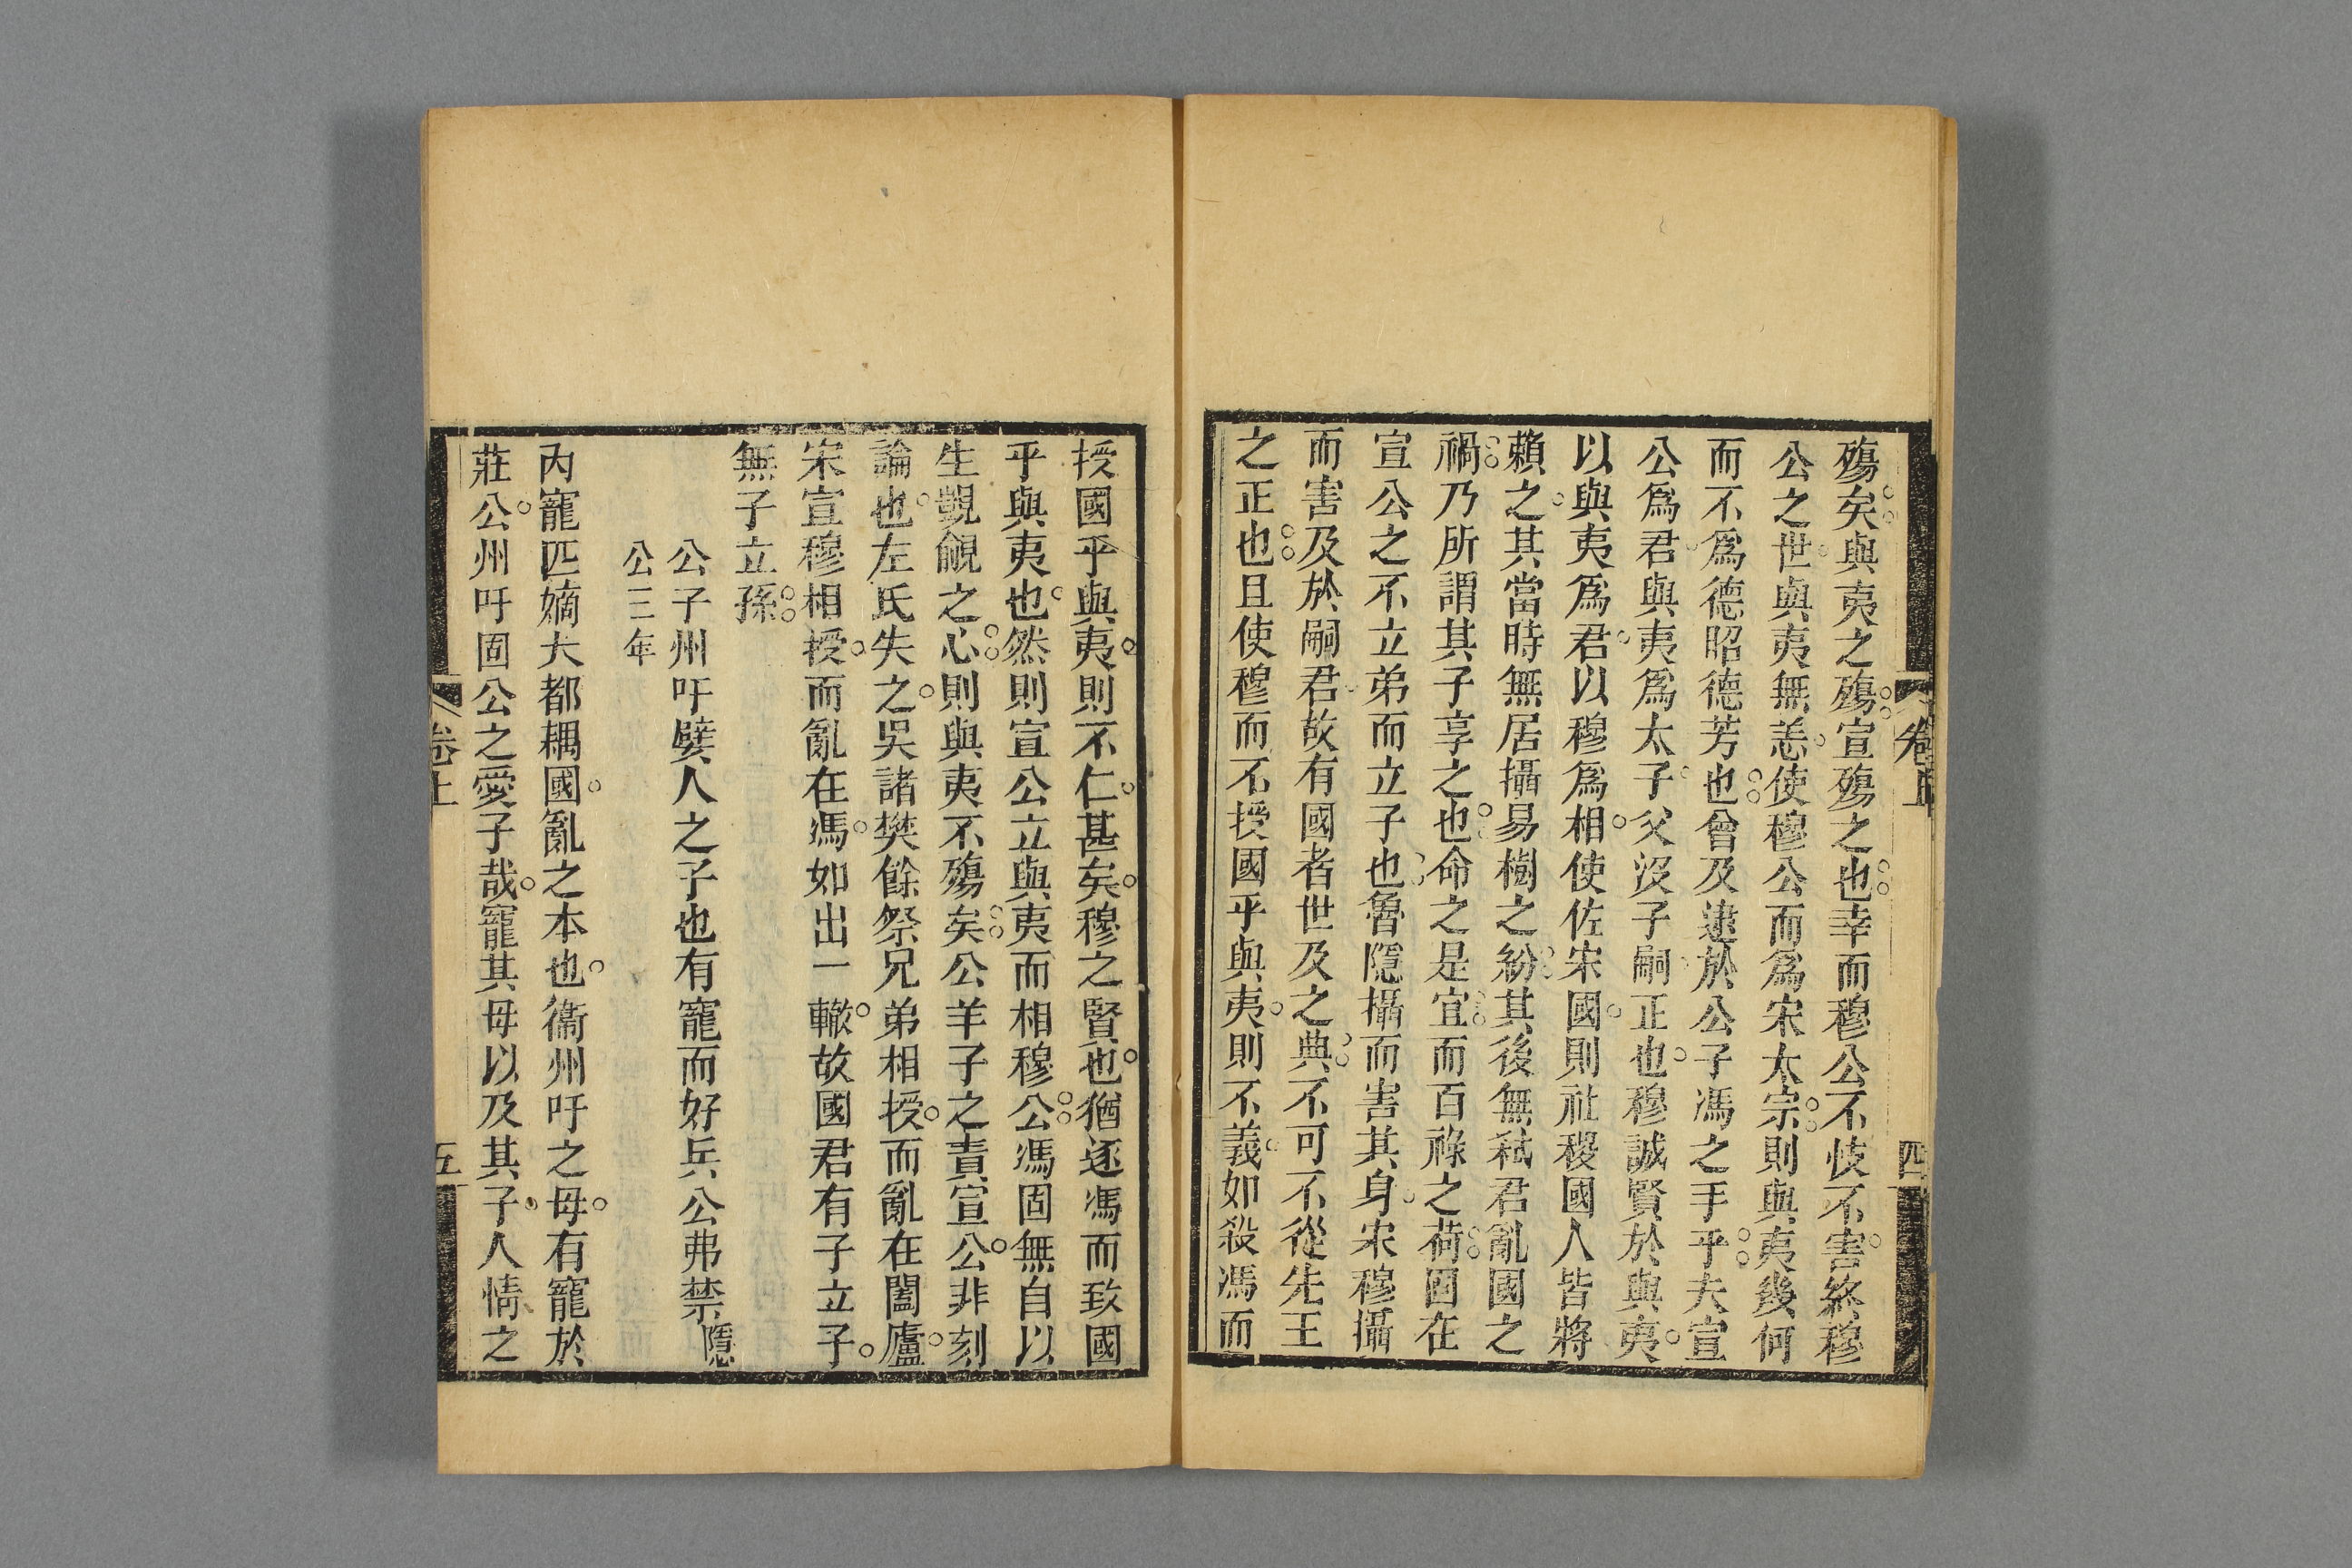 殤矣與夷之殤宣殤之也幸而穆公不忮不害終穆
公之世與夷無恙使穆公而爲宋太宗則與夷幾何
而不爲德昭德芳也曾及逮於公子馮之手乎夫宣
公爲君與夷爲太子父沒子嗣正也穆誠賢於與夷
以與夷爲君以穆爲相使佐宋國則社稷國人皆將
賴之其當時無居攝易樹之紛其後無弒君亂國之
禍乃所謂其子享之也命之是宜而百祿之荷固在
宣公之不立弟而立子也魯隱攝而害其身宋穆攝
而害及於嗣君故有國者世及之典不可不從先王
之正也且使穆而不授國乎與夷則不義如殺馮而
卷上
四
授國乎與夷則不仁甚矣穆之賢也猶逐馮而致國
乎與夷也然則宣公立與夷而相穆公馮固無自以
生覬覦之心則與夷不殤矣公羊子之責宣公非刻
論也左氏失之吳諸樊餘祭兄弟相授而亂在闔廬
宋宣穆相授而亂在馮如出一轍故國君有子立子
無子立孫
公子州吁嬖人之子也有寵而好兵公弗禁隱
公三年
內寵匹嫡大都耦國亂之本也衞州吁之母有寵於
莊公州吁固公之愛子哉寵其母以及其子人情之
卷上
五